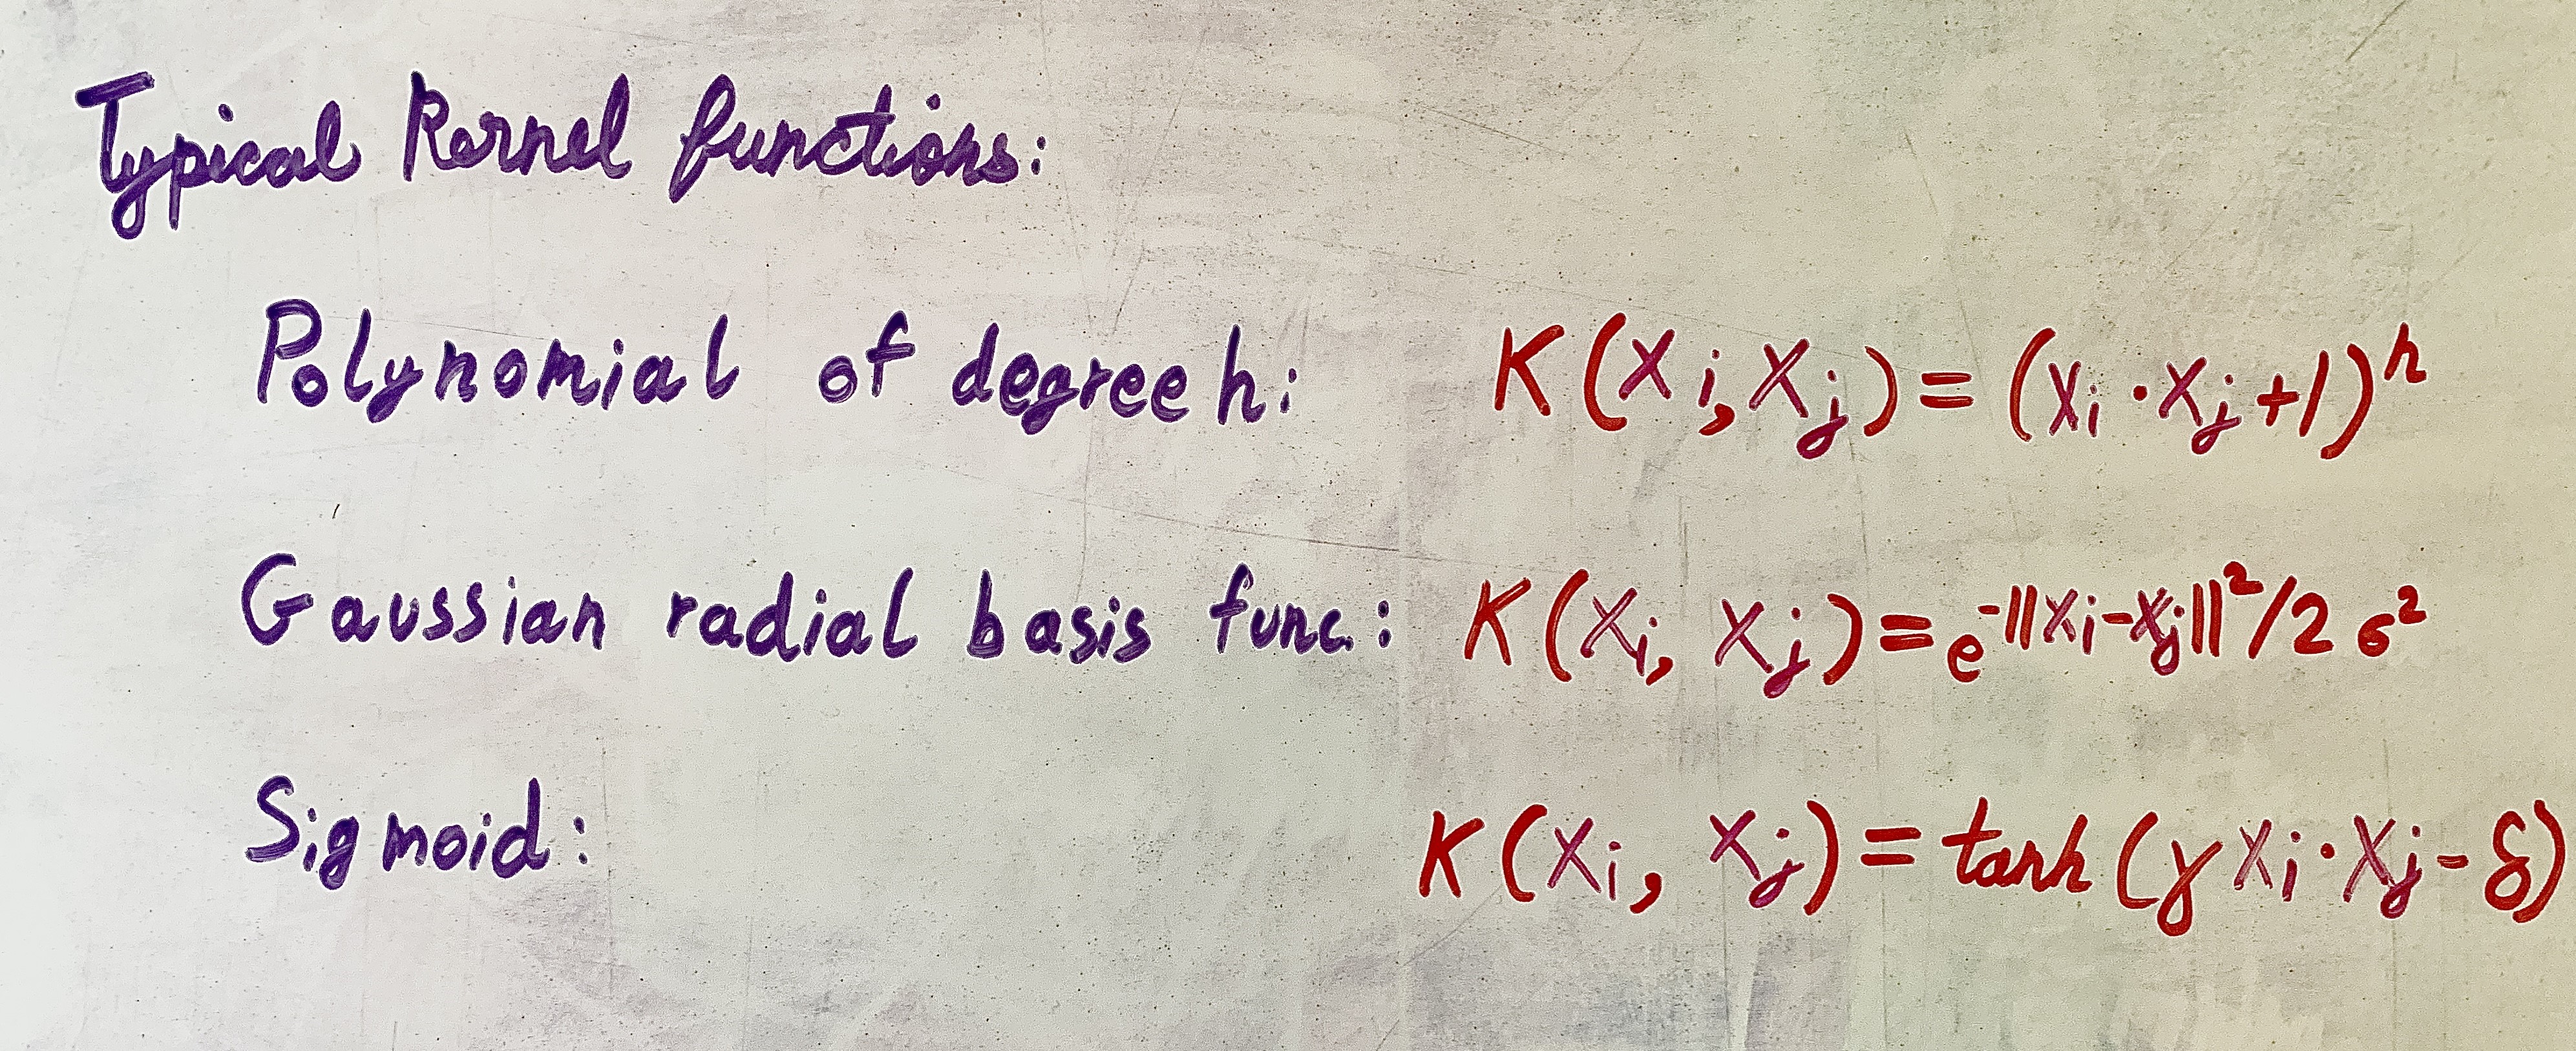 Typical Kernel functions:
Polynomial of degree h: K(Xi, Xj) = (Xi · Xj + 1)^h
Gaussian radial basis func.: K(Xi, Xj) = e^-||Xi - Xj||^2/2σ^2
Sigmoid: K(Xi, Xj) = tanh(γXi · Xj - δ)